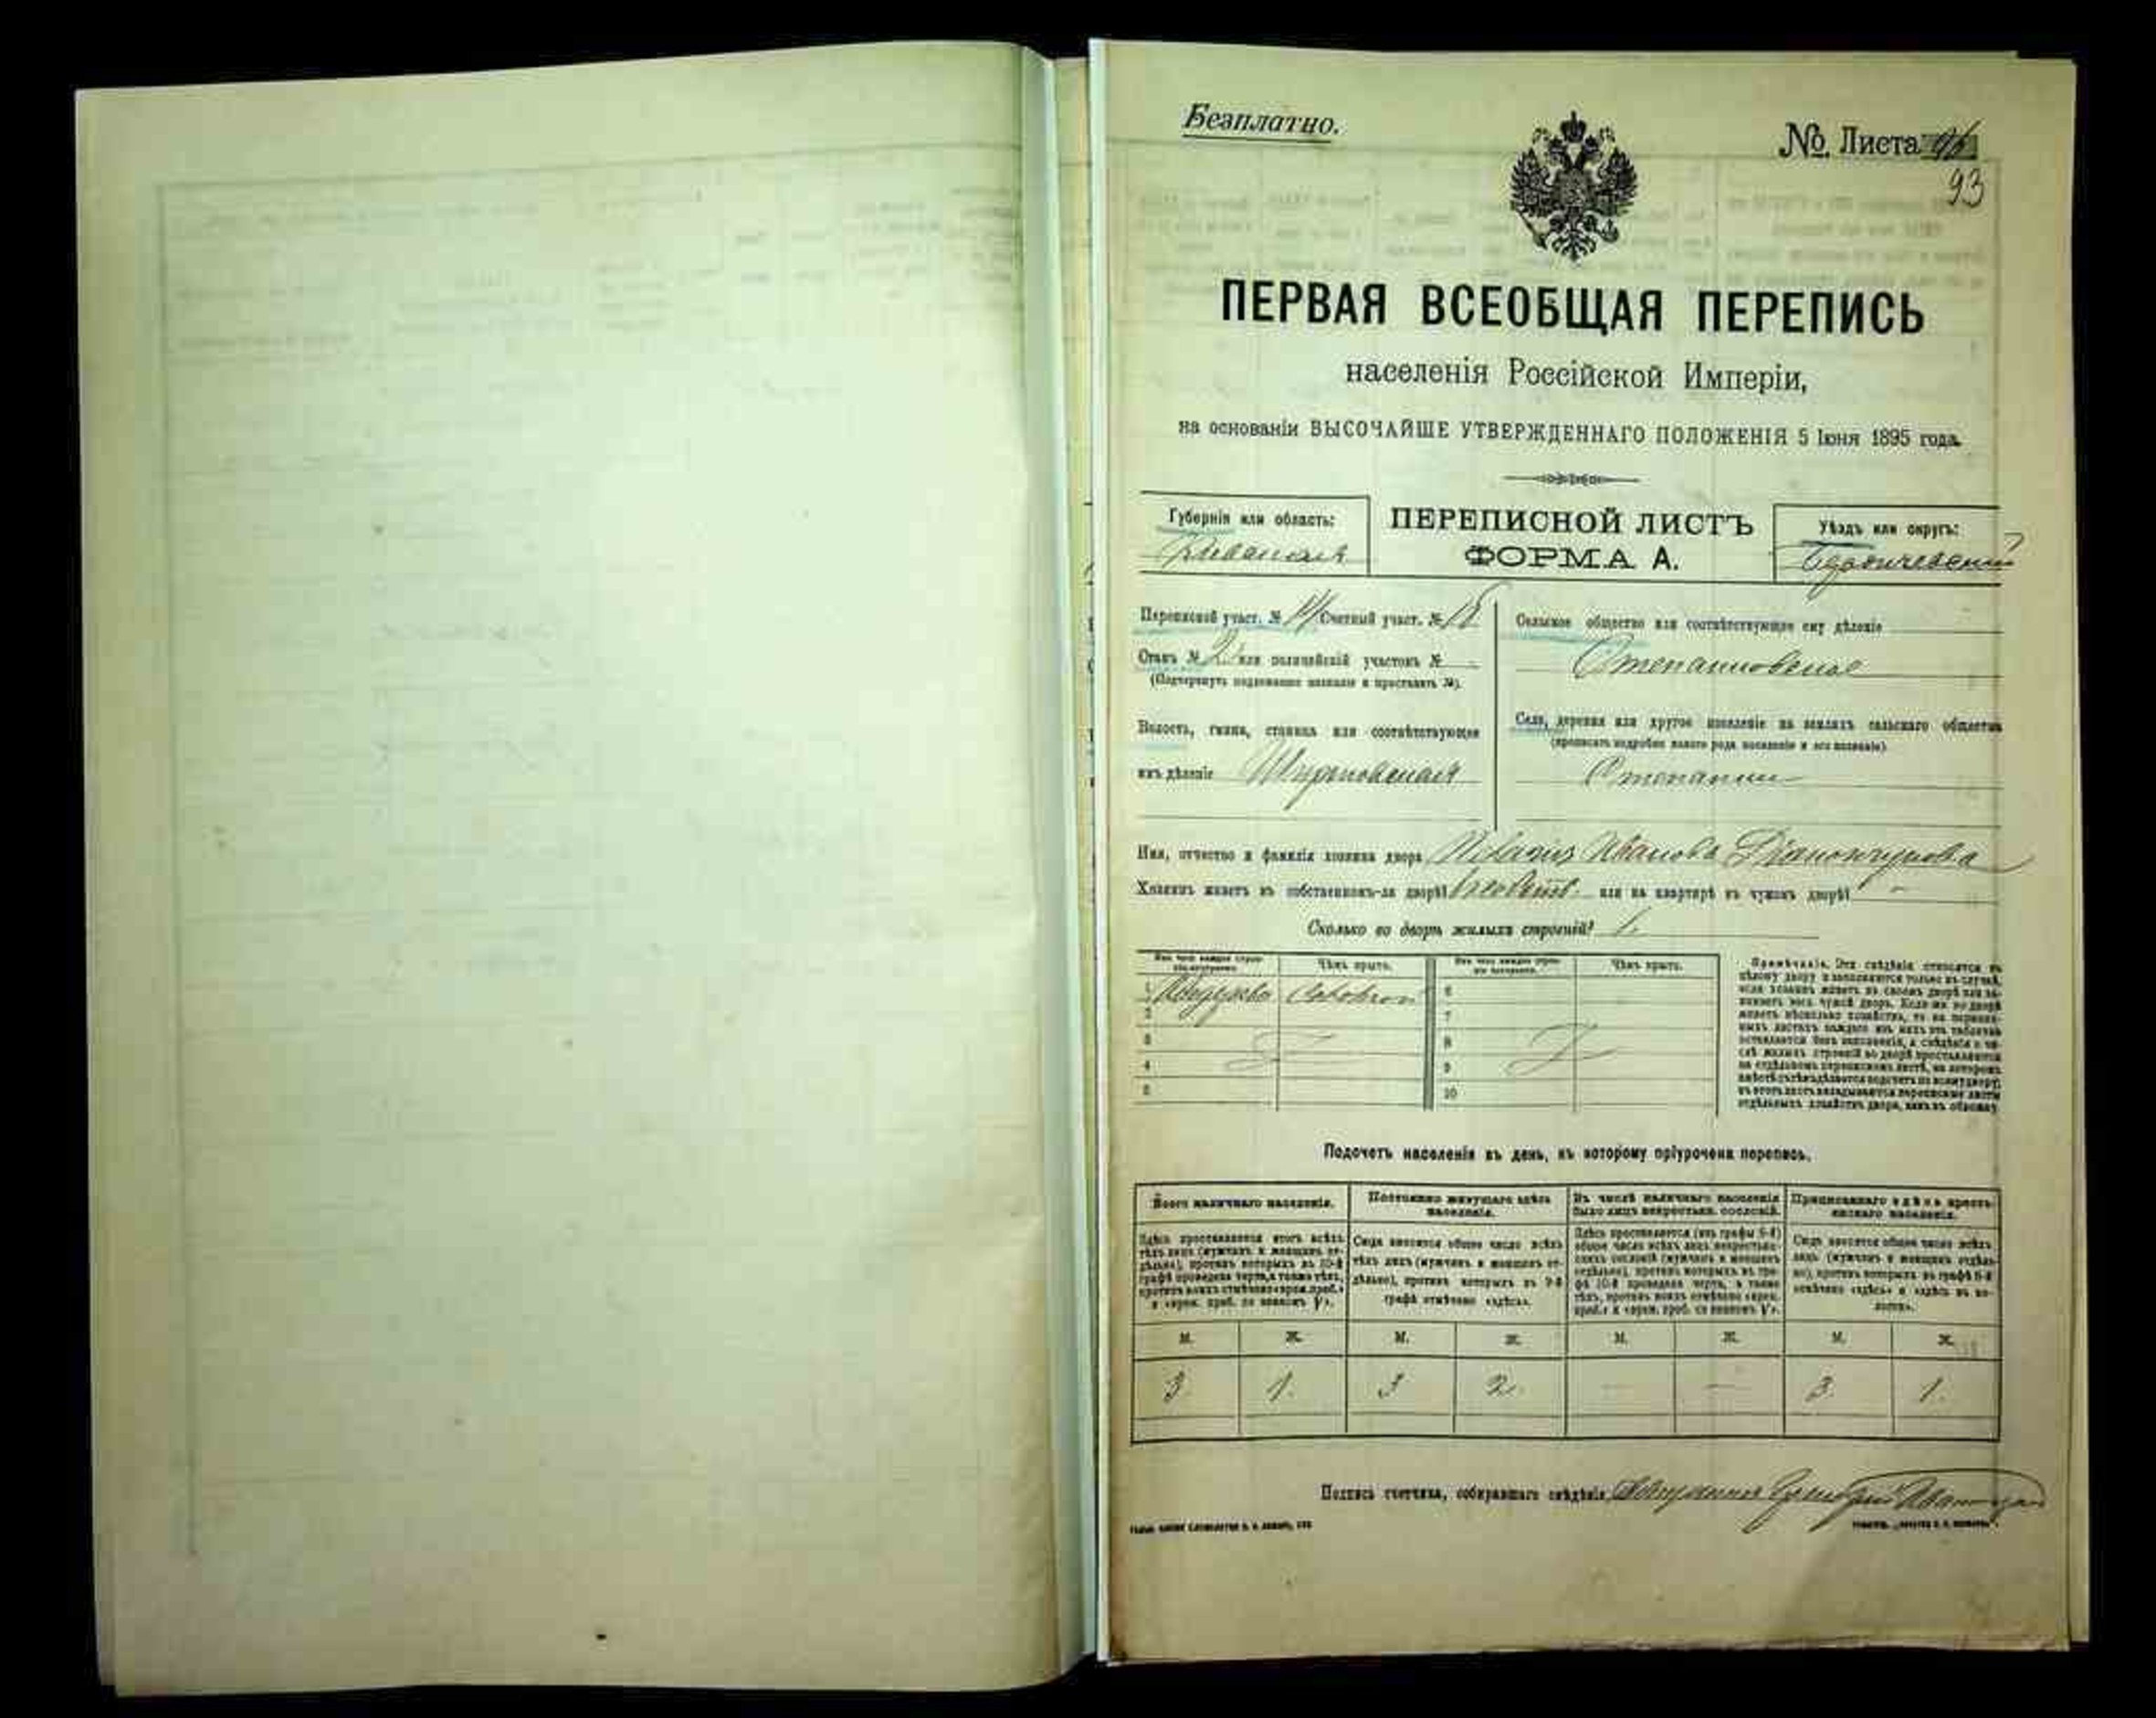 Безплатно.
№ Листа
93
ПЕРВАЯ ВСЕОБЩАЯ ПЕРЕПИСЬ
населенія Россійской Имперіи,
на основаніи ВЫСОЧАЙШЕ УТВЕРЖДЕННАГО ПОЛОЖЕНІЯ 5 Іюня 1895 года.
Губернія или область:
Кіевская
ПЕРЕПИСНОЙ ЛИСТЪ
ФОРМА А.
Уѣздъ или округъ:
Бердичевскій
Переписной участ. № 14 Счетный участ. № 18
Станъ № 2 или полицейскій участокъ №
(Подчеркнуть надлежащее названіе и проставить №).
Волость, гмина, станица или соотвѣтствующее
имъ дѣленіе
Сельское общество или соотвѣтствующее ему дѣленіе
Степановское
Село, деревня или другое поселеніе на земляхъ сельскаго общества
(прописать подробно какого рода поселеніе и его названіе).
Имя, отчество и фамилія хозяина двора Иванова
Хозяинъ живетъ въ собственномъ-ли дворѣ? или на квартирѣ въ чужомъ дворѣ? -
Сколько во дворѣ жилыхъ строеній? 1.
Изъ чего каждое строеніе построено. Чѣмъ крыто. Изъ чего каждое строеніе построено. Чѣмъ крыто.
1 6
2 7
3 8
4 9
5 10
Примѣчаніе. Эти свѣдѣнія относятся къ
цѣлому двору и заполняются только въ случаѣ,
если хозяинъ живетъ въ своемъ дворѣ или за-
нимаетъ весь чужой дворъ. Если же во дворѣ
живетъ нѣсколько хозяйствъ, то на перепис-
ныхъ листахъ каждаго изъ нихъ эта табличка
оставляется безъ заполненія, а свѣдѣнія о чи-
слѣ жилыхъ строеній во дворѣ проставляются
на отдѣльномъ переписномъ листѣ, на которомъ
вмѣстѣ съ тѣмъ дѣлается подсчетъ по всему двору;
въ этотъ листъ вкладываются переписные листы
отдѣльныхъ хозяйствъ двора, какъ въ обложку.
Подсчетъ населенія въ день, къ которому пріурочена перепись.
Всего наличнаго населенія.
Здѣсь проставляется итогъ всѣхъ
тѣхъ лицъ (мужчинъ и женщинъ от-
дѣльно), противъ которыхъ въ 10-й
графѣ проведена черта, а также тѣхъ,
противъ коихъ отмѣчено «врем. преб.»
Постоянно живущаго здѣсь
населенія.
Сюда вносится общее число всѣхъ
тѣхъ лицъ (мужчинъ и женщинъ от-
дѣльно), противъ которыхъ въ 9-й
графѣ отмѣчено «здѣсь».
Въ числѣ наличнаго населенія
было лицъ некрестьян. сословій.
Здѣсь проставляется (изъ графы 5-й)
общее число всѣхъ лицъ некрестьян-
скихъ сословій (мужчинъ и женщинъ
отдѣльно), противъ которыхъ въ гра-
фѣ 10-й проведена черта, а также
тѣхъ, противъ коихъ отмѣчено «врем.
Приписаннаго здѣсь кресть-
янскаго населенія.
Сюда вносится общее число всѣхъ
лицъ (мужчинъ и женщинъ отдѣль-
но), противъ которыхъ въ графѣ 8-й
отмѣчено «здѣсь» и «здѣсь въ во-
лости».
М. Ж. М. Ж. М. Ж. М. Ж.
3 1. 3 2. — — 3. 1.
Подпись счетчика, собиравшаго свѣдѣнія